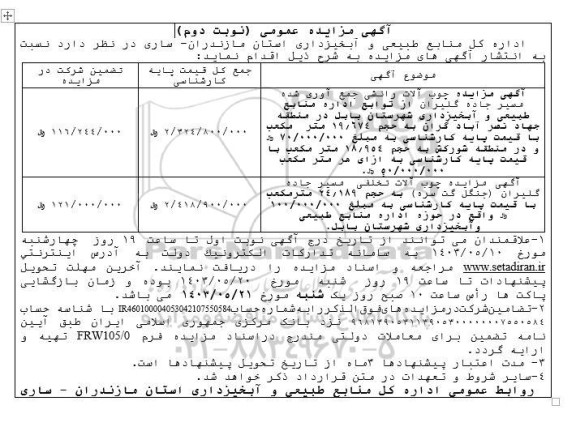 آگهی مزایده عمومی (نوبت دوم)
اداره کل منابع طبیعی و آبخیزداری استان مازندران- ساری در نظر دارد نسبت
به انتشار آگهی های مزایده به شرح ذیل اقدام نماید:
موضوع آگهی
جمع کل قیمت پایه کارشناسی
تضمین شرکت در مزایده
آگهی مزایده چوب آلات رانشی جمع آوری شده
مسیر جاده گلیران از توابع اداره منابع
طبیعی و آبخیزداری شهرستان بابل در منطقه
جهاد نصر آباد گران به حجم ۱۹٫۶۷۴ متر مکعب
با قیمت پایه کارشناسی به مبلغ ۷۰/۰۰۰/۰۰۰ ریال
و در منطقه شورکش به حجم ۱۸٫۹۵۴ متر مکعب با
قیمت پایه کارشناسی به ازای هر متر مکعب
۵۰/۰۰۰/۰۰۰ ریال.
۲/۳۲۴/۸۰۰/۰۰۰ ریال
۱۱۶/۲۴۴/۰۰۰ ریال
آگهی مزایده چوب آلات تخلفی مسیر جاده
گلیران (جنگل گت سره) به حجم ۲۴٫۱۸۹ مترمکعب
با قیمت پایه کارشناسی به مبلغ ۱۰۰/۰۰۰/۰۰۰
ریال واقع در حوزه اداره منابع طبیعی
وآبخیزداری شهرستان بابل.
۲/۴۱۸/۹۰۰/۰۰۰ ریال
۱۲۱/۰۰۰/۰۰۰ ریال
۱-علاقمندان می توانند از تاریخ درج آگهی نوبت اول تا ساعت ۱۹ روز چهارشنبه
مورخ ۱۴۰۳/۰۵/۱۰ به سامانه تدارکات الکترونیک دولت به آدرس اینترنتی
www.setadiran.ir مراجعه و اسناد مزایده را دریافت نمایند. آخرین مهلت تحویل
پیشنهادات تا ساعت ۱۹ روز شنبه مورخ ۱۴۰۳/۰۵/۲۰ بوده و زمان بازگشایی
پاکت ها رأس ساعت ۱۰ صبح روز یک شنبه مورخ ۱۴۰۳/۰۵/۲۱ می باشد.
۲-تضامین شرکت در مزایده های فوق الذکر را به شماره حساب IR460100004053042107550584 با شناسه حساب
نزد بانک مرکزی جمهوری اسلامی ایران طبق آیین
نامه تضمین برای معاملات دولتی مندرج در اسناد مزایده فرم FRW105/0 تهیه و
ارایه گردد.
۳- مدت اعتبار پیشنهادها ۳ماه از تاریخ تحویل پیشنهادها است.
۴-سایر شروط و تعهدات در متن قرارداد ذکر خواهد شد.
روابط عمومی اداره کل منابع طبیعی و آبخیزداری استان مازندران - ساری
۰۲۱-۸۸۳۴۹۶۷۰-۵